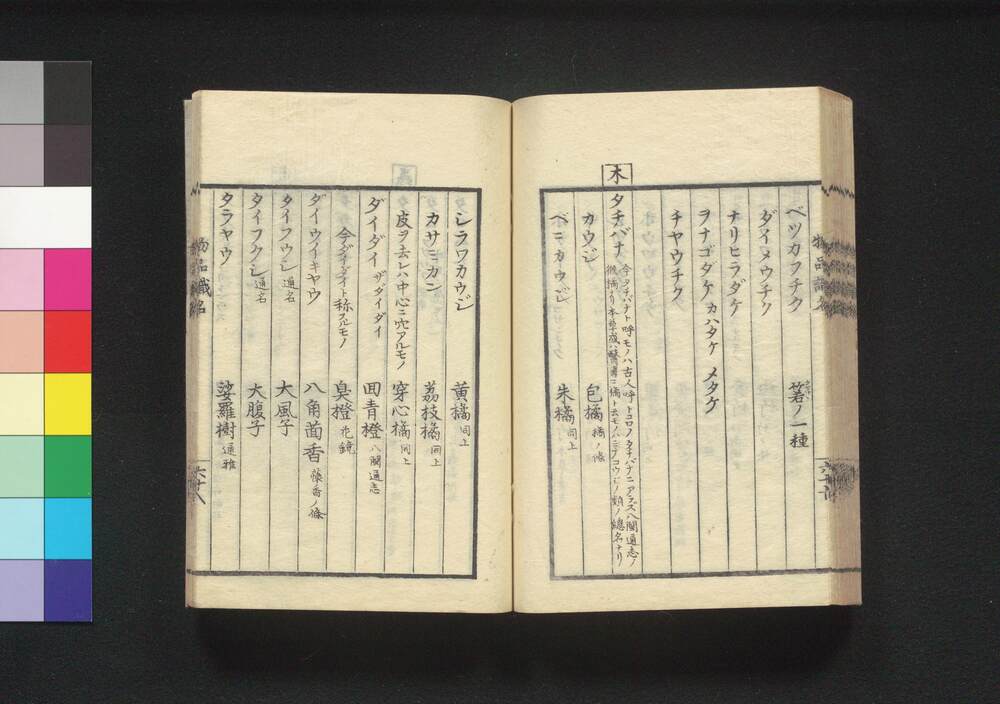 ベツカフチク 箬ノ一種
ダイメウチク
ナリヒラダケ
ヲナゴダケ カハタケ メタケ
チヤウチク
木
タチバナ 今タチバナト呼モノハ古人呼トコロノタチバナニアラズ八閩通志ノ
カウジ 包橘 橘ノ條
ベニカウジ 朱橘 同上
シラワカウジ 黄橘 同上
カサミカン 荔枝橘 同上
皮ヲ去レハ中心ニ穴アルモノ 穿心橘 同上
ダイダイ ザダイダイ 回青橙 八閩通志
今ダイダイト称スルモノ 臭橙 花鏡
ダイウイキヤウ 八角茴香 懐香ノ條
タイフウシ 通名 大風子
タイフクシ 通名 大腹子
タラヤウ 娑羅樹 通雅
物品識名
六十八